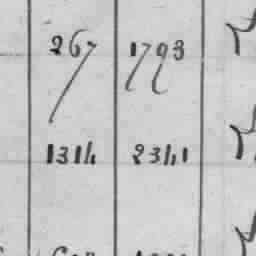 267 1793
1314 2341